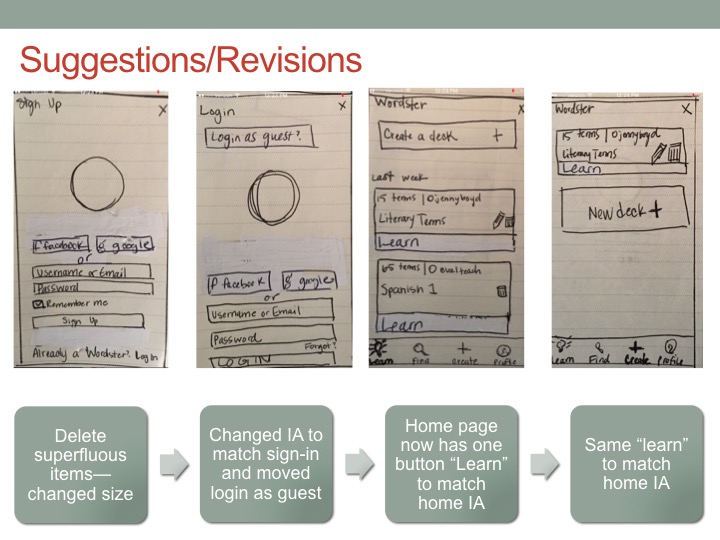 Suggestions/Revisions
Sign Up X
facebook google
or
Username or Email
Password
Remember me
Sign Up
Already a Wordster? Log In
Login X
Login as guest?
facebook google
or
Username or Email
Password
Forgot?
LOGIN
Wordster X
Create a deck +
Last week
15 terms | 0 jennyboyd
Literary Terms
Learn
65 terms | 0
Spanish 1
Learn
Learn Find Create Profile
Wordster X
15 terms | 0 jennyboyd
Literary Terms
Learn
New deck +
Learn Find Create Profile
Delete
superfluous
items—
changed size
Changed IA to
match sign-in
and moved
login as guest
Home page
now has one
button “Learn”
to match
home IA
Same “learn”
to match
home IA